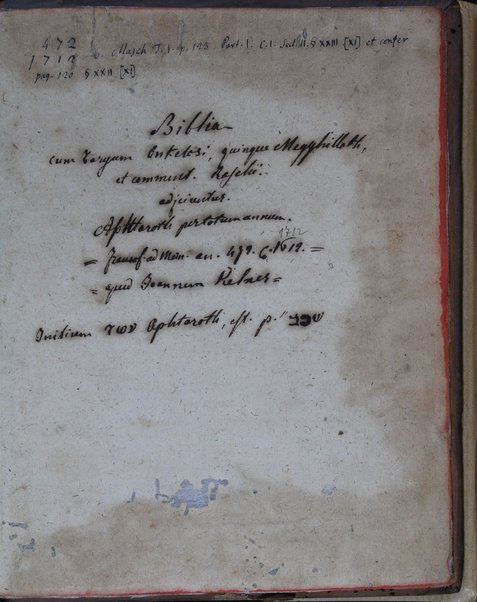 472
1712 v. Masch T. I. p. 123 Part. I. C. I. Sect. II. § XXIII [XI] et confer
pag. 120 § XXII [XI]
Biblia
cum Targum Onkelosi, quinque Megghilloth,
et comment. Raschii.
adjiciuntur.
Aphtaroth per totum annum.
1712
= Francof. ad Mœn. an. 472. C. 1712. =
= apud Joannem Kelner =
Initium Aphtaroth, est p.